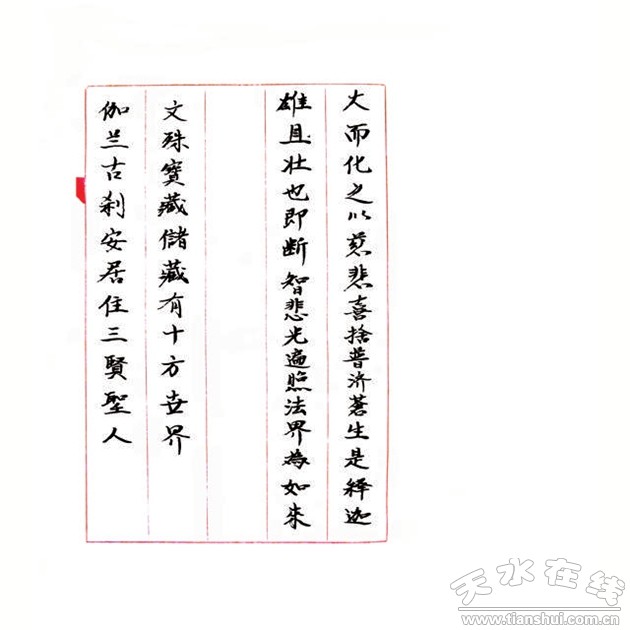 大而化之以慈悲喜捨普济蒼生是释迦
雄且壮也即断智悲光遍照法界為如来
文殊寳藏儲藏有十方世界
伽兰古刹安居住三賢聖人
天水在线
www.tianshui.com.cn